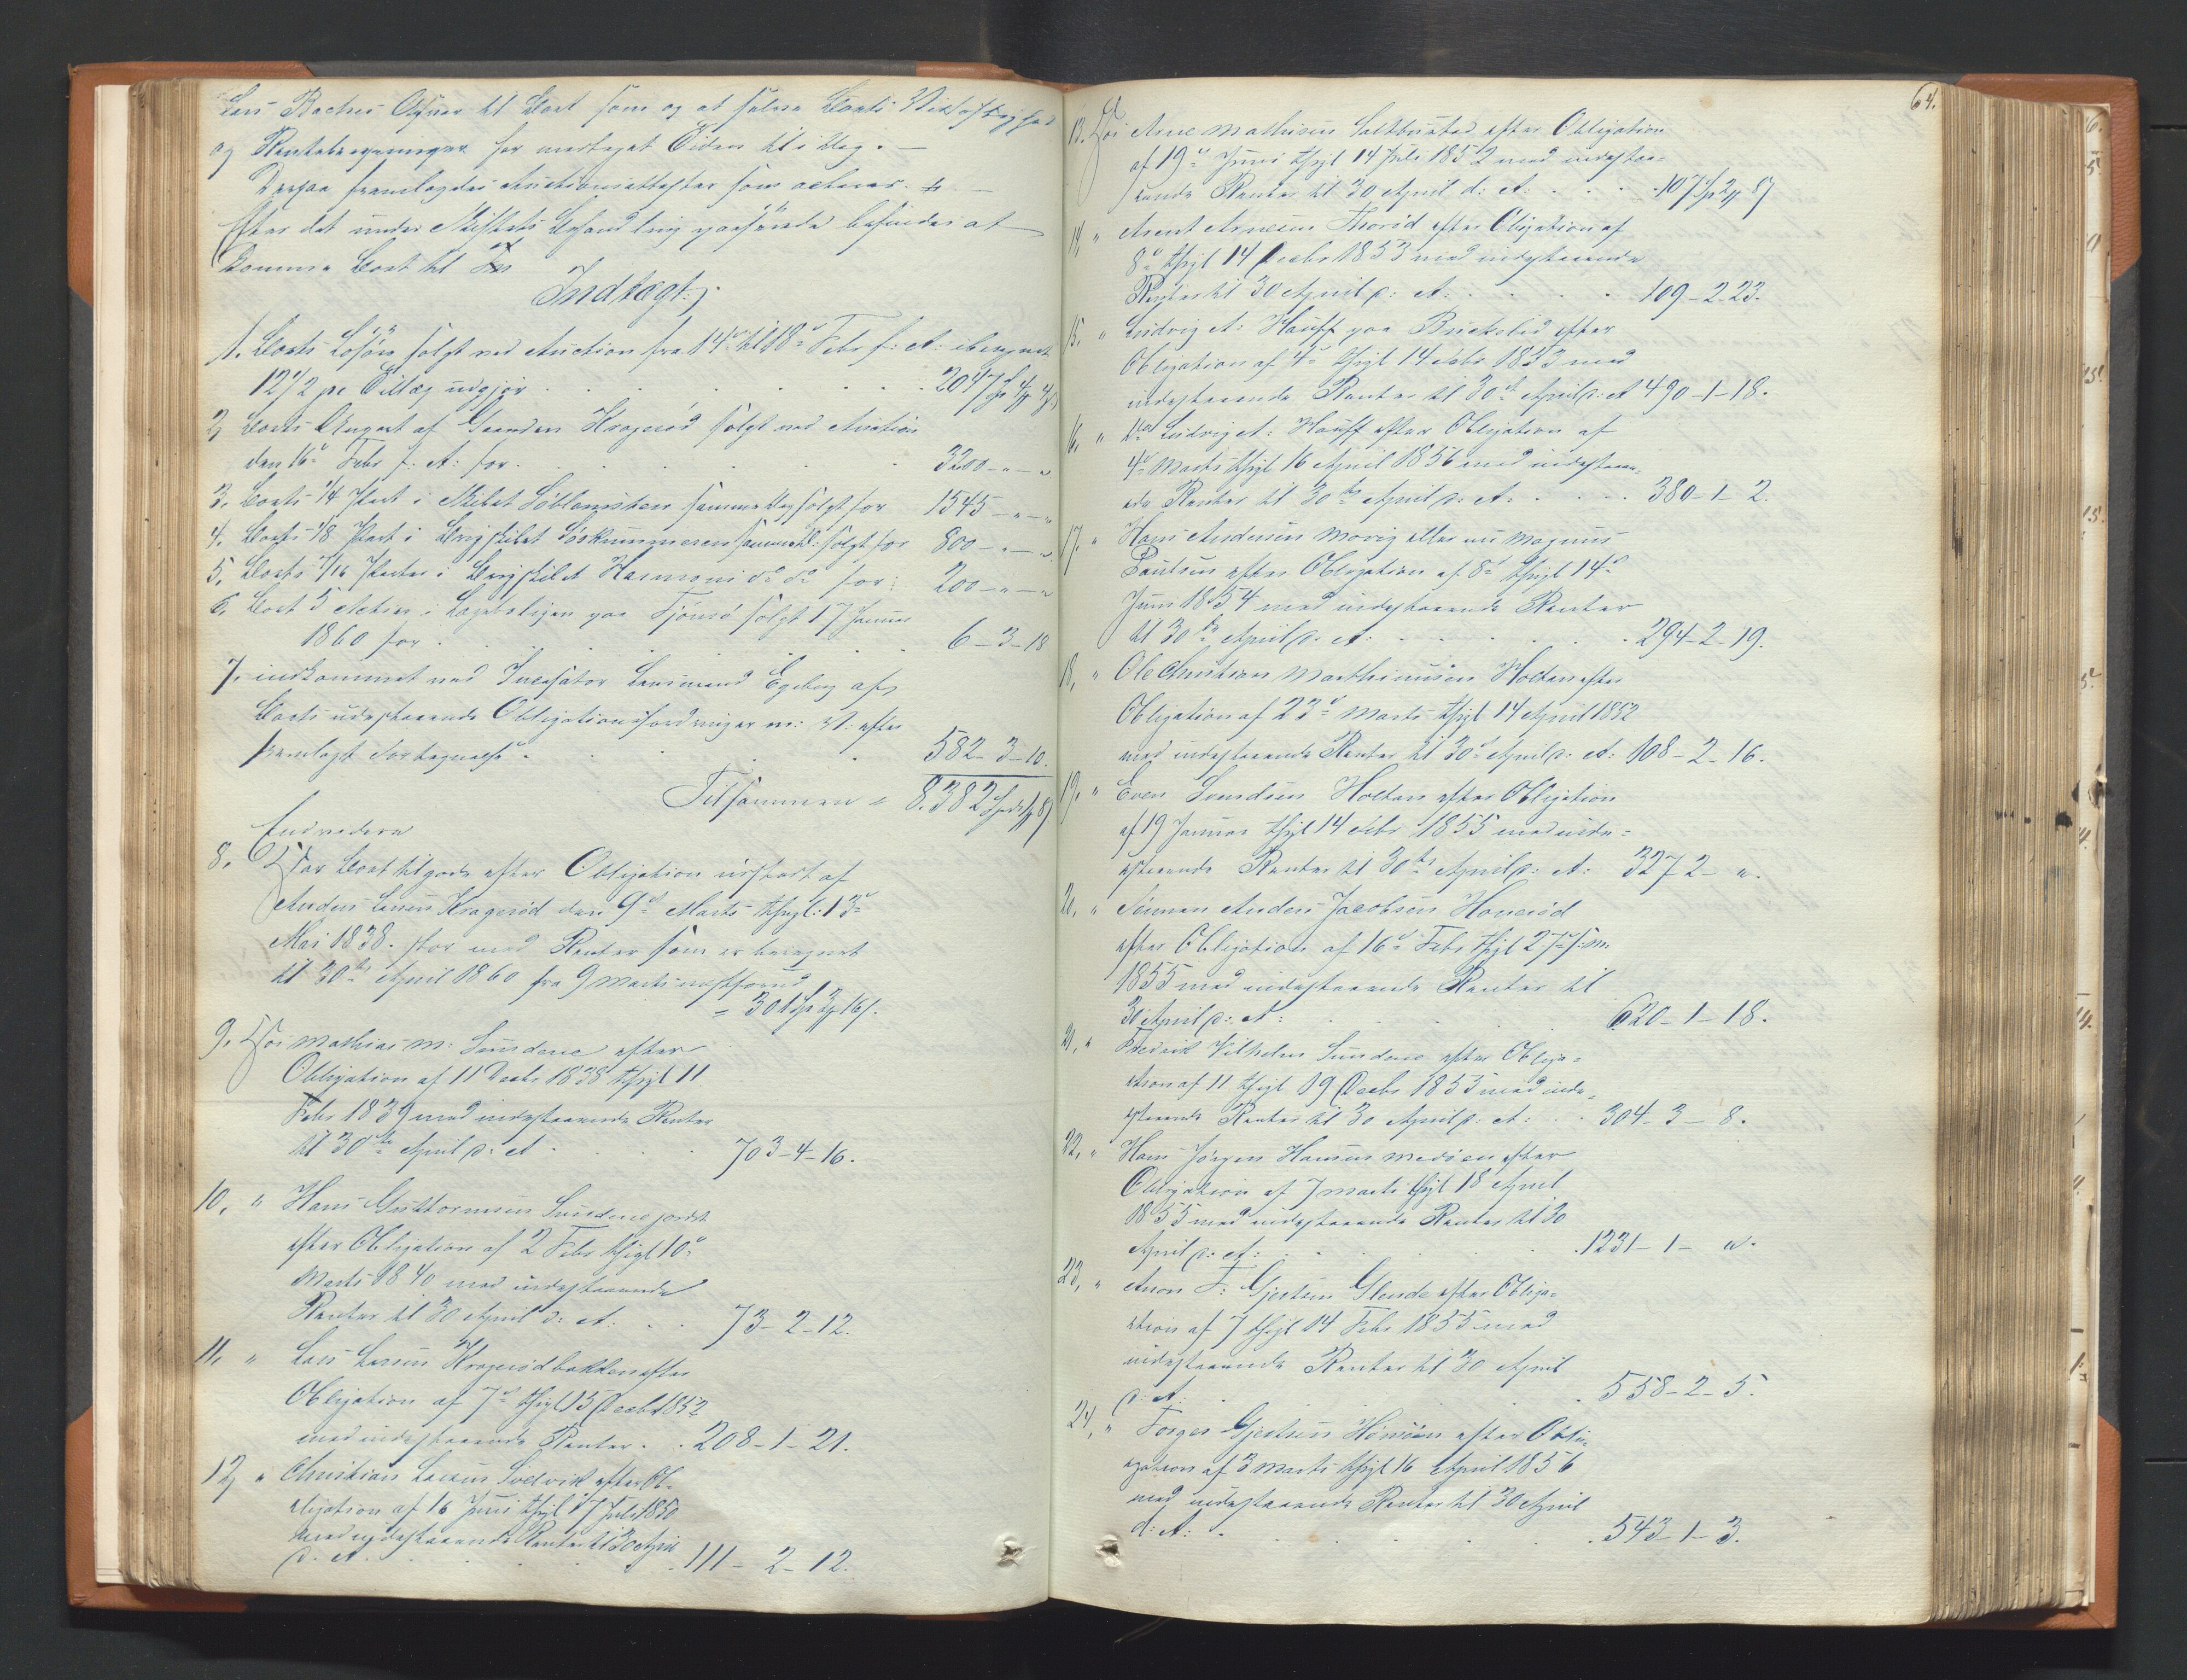 og Renteberegninger har medtaget Tiden til i dag. –
Derpaa fremlagdes Auctionsattester som acteres. –
Efter det under Skiftets Behandling passerede befindes at
komme Boet til
Indtægt:
1. Boets Løsøre solgt ved Auction fra 14de til 18de Febr f: A: iberegnet
12 1/2 pc Tillæg udgjør . . . 2047
2, Boets Anpart af Gaarden Kragerød solgt ved Auction
den 16de Febr f: A: for . . . 3200 - " - "
3. Boets 1/4 Part i Skibet Søblomsten samme Dag solgt for 1545 - " - "
4. Boets 1/8 Part i Brigskibet solgt for 800 - " - "
5. Boets 1/16 Parter i Brigskibet Harmoni do do for: 200 - " - "
6. Boet 5 Actier i paa Tjømø solgt 17 Januar
1860 for . . . 6 - 3 - 18
7. indkommet ved Incassator Lensmand Egeberg af
Boets udestaaende Obligationsfordringer m: V: efter
fremlagt Fortegnelse . . . 582 - 3 - 10.
Tilsammen = 8.382
Endvidere
8. Har Boet tilgode efter Obligation udstedt af
Anders Larsen Kragerød den 9de Marts thgl: 13de
Mai 1838. stor med Renter som er beregnet
til 30te April 1860 fra 9 Marts
= 301 16
9. Hos Mathias M: Sundene efter
Obligation af 11 Decbr 1838 thgl 11
Febr 1839 med indestaaende Renter
til 30te April d: A . . . 703 - 4 - 16.
10, " Hans Guttormsen Sundene
efter Obligation af 2 Febr thgl 10de
Marts 1840 med indestaaende
Renter til 30 April d: A. . . 73 - 2 - 12.
11, " Lars Larsen Kragerødbakken efter
Obligation af 7de thgl 15 Decbr 1852
med indestaaende Renter . . 208 - 1 - 21.
12, " Christian Larsen efter Ob-
ligation af 16 Juni thgl 17 Juli 1850
med indestaaende Renter til 30 April
d: A. . . . 111 - 2 - 12.
64.
13. Hos Arne Mathisen efter Obligation
af 19de Juni thgl 14 Juli 1852 med indestaa-
ende Renter til 30 April d: A: . . . 107
14, " Arent Arnesen efter Obligation af
8de thgl 14 Decbr 1853 med indestaaende
Renter til 30 April d: A: . . . 109 - 2 - 23.
15, " Ludvig A: Hauff paa efter
Obligation af 4de thgl 14 Febr 1853 med
indestaaende Renter til 30te April d: A 490 - 1 - 18.
16, " Ludvig A: Hauff efter Obligation af
4de Marts thgl 16 April 1856 med indestaa-
ende Renter til 30te April d: A: . . . 380 - 1 - 2.
17. " Hans Andersen eller nu Magnus
Paulsen efter Obligation af 8de thgl 14de
Juni 1854 med indestaaende Renter
til 30te April d: A: . . . 294 - 2 - 19.
18, " Ole Christian Mathisen Holten efter
Obligation af 23de Marts thgl 14 April 1852
med indestaaende Renter til 30te April d: A: 108 - 2 - 16.
19, " Even Svendsen Holten efter Obligation
af 19 Januar thgl 14 Febr 1855 med inde-
staaende Renter til 30te April d: A: 327 2 - ".
20, " Anders Jacobsen
efter Obligation af 16de Febr thgl 27de s: M:
1855 med indestaaende Renter til
30 April d: A: . . . 620 - 1 - 18.
21, " Fredrik Vilhelm Sundene efter Obliga-
tion af 11 thgl 19 Decbr 1855 med inde-
staaende Renter til 30 April d: A: . . 304 - 3 - 8.
22, " Hans Jörgen Hansen efter
Obligation af 7 Marts thgl 18 April
1855 med indestaaende Renter til 30
April d: A: . . . 1231 - 1 - ".
23, " Anon F: Gjertsen Glende efter Obliga-
tion af 7 thgl 14 Febr 1855 med
indestaaende Renter til 30 April
d: A: . . . 558 - 2 - 5.
24, " Torger Gjertsen efter Obli-
gation af 3 Marts thgl 16 April 1856
med indestaaende Renter til 30 April
d: A: . . . 543 - 1 - 3.